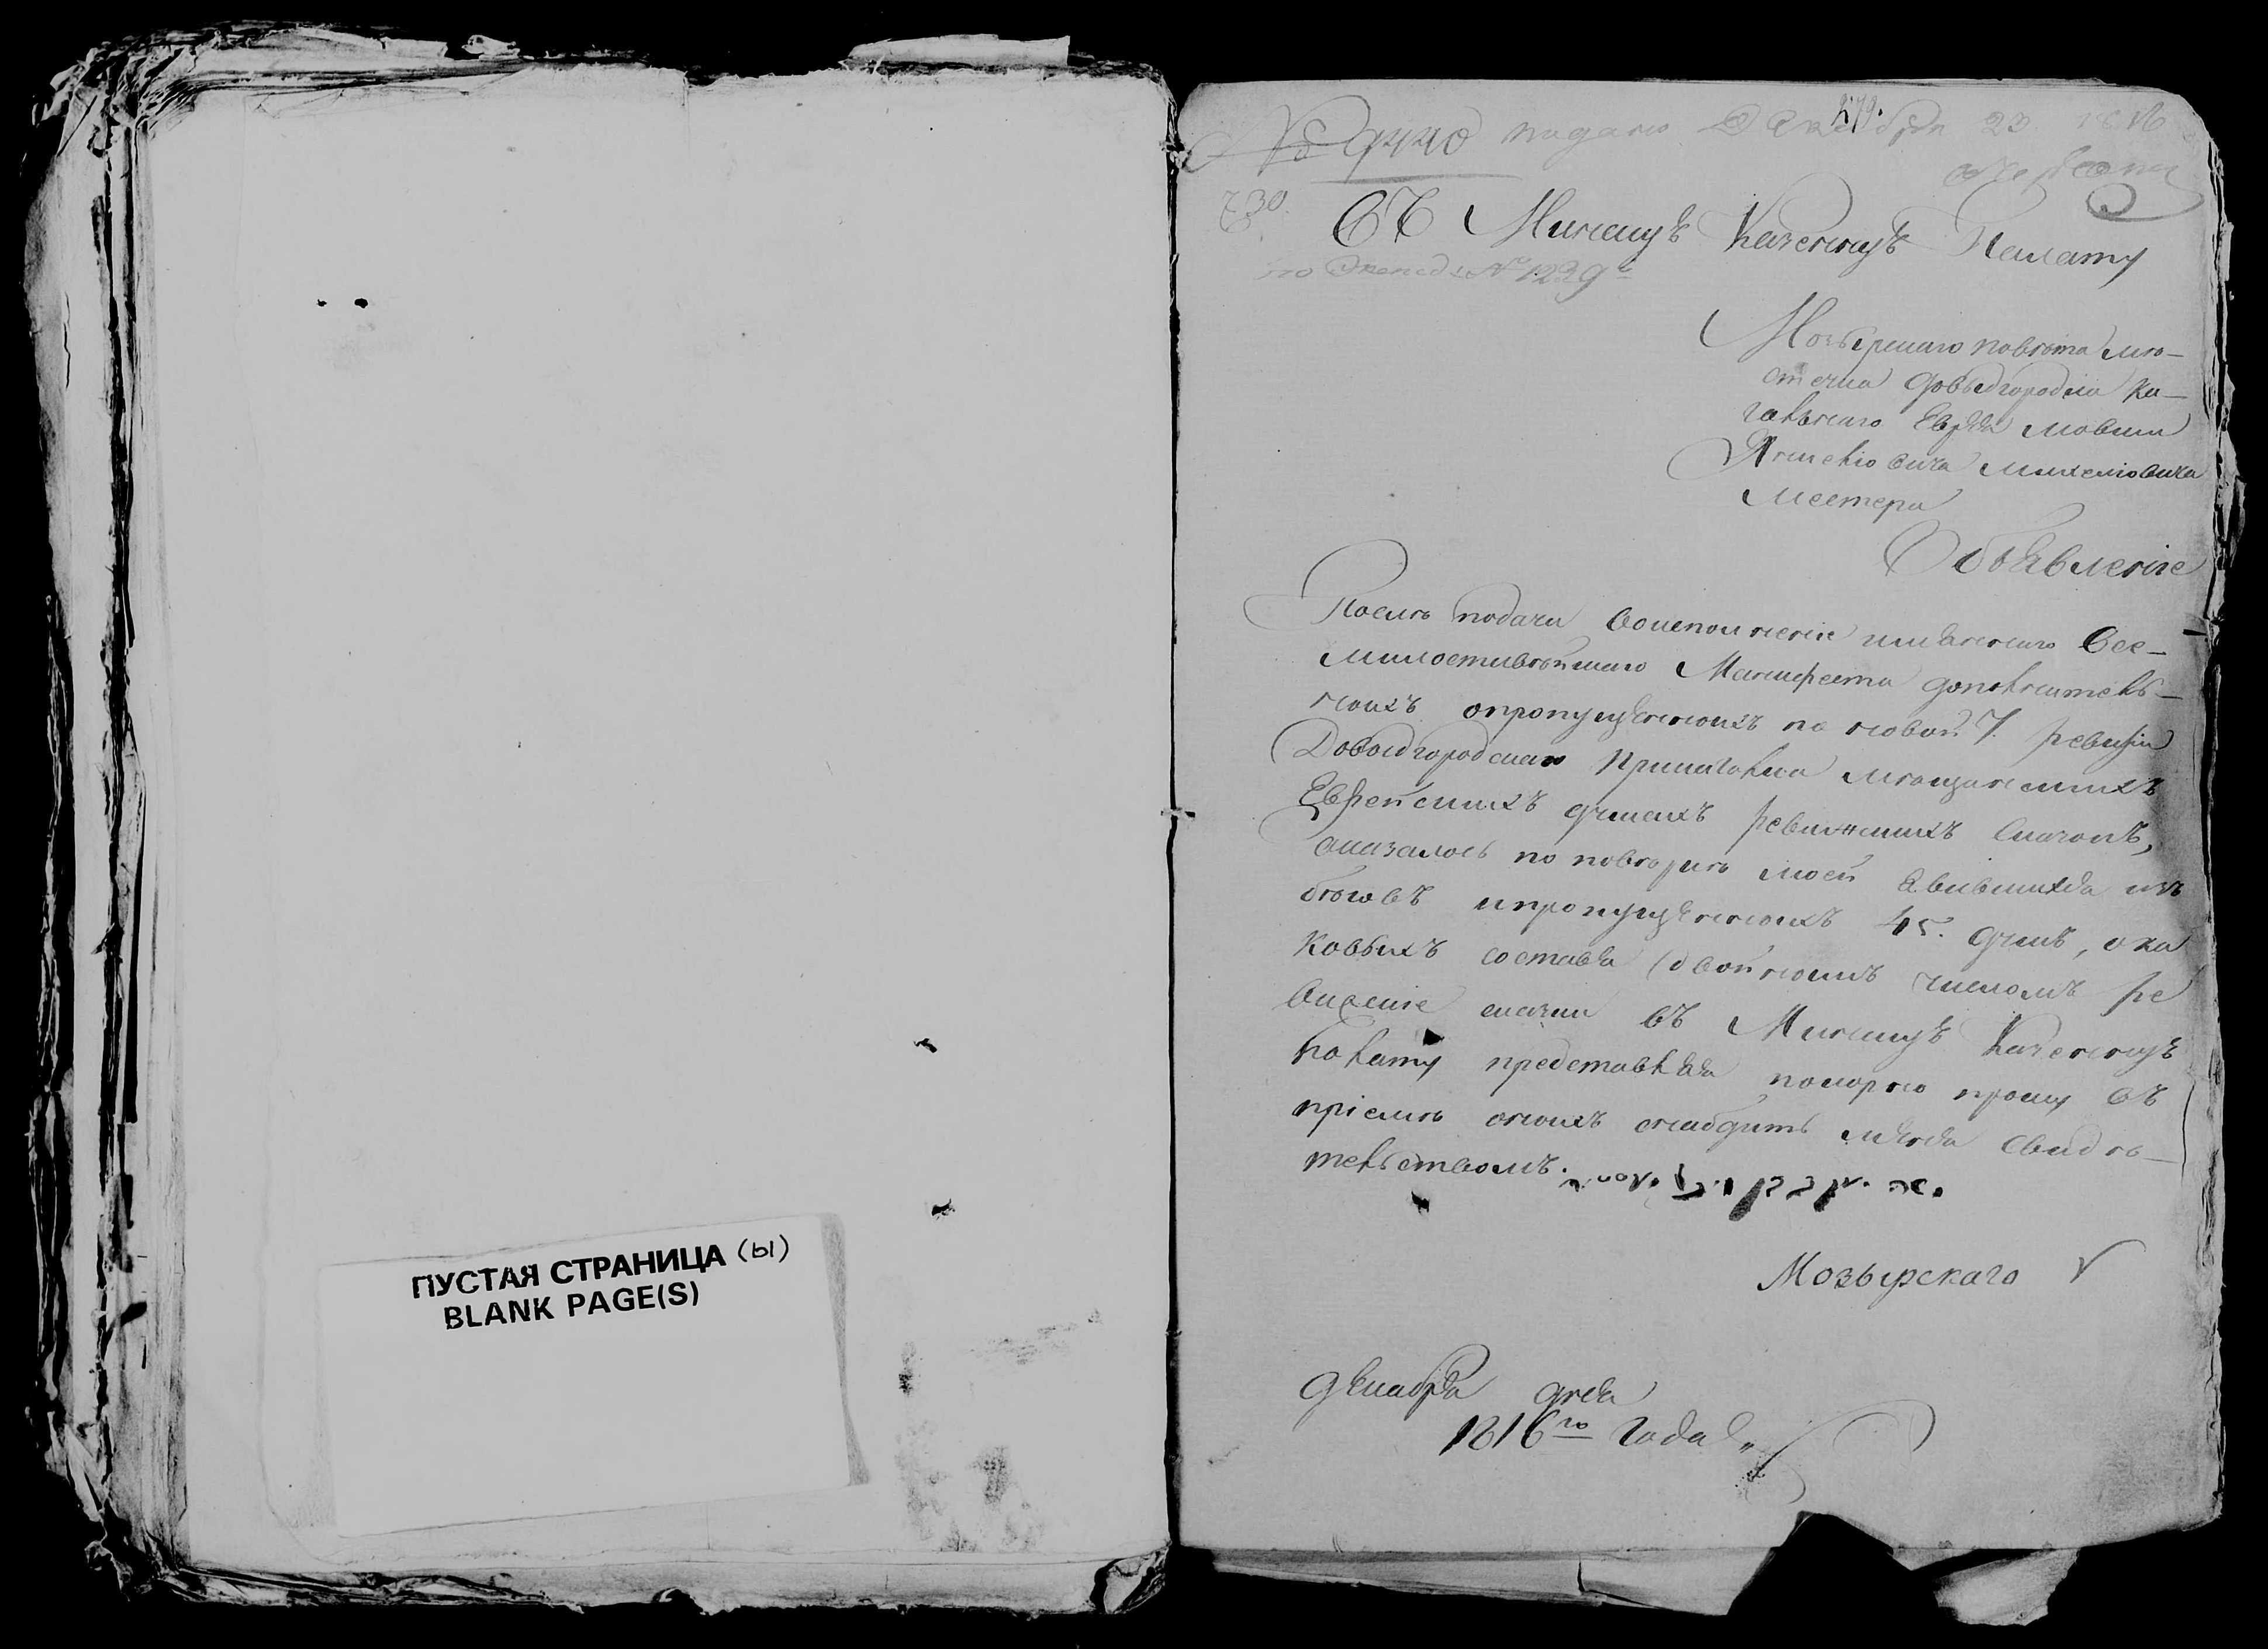 ПУСТАЯ СТРАНИЦА (ы)
BLANK PAGE(S)
279.
подано Декабря 23 1816
730.
Въ Минскую Казенную Палату
по Экспед: № 1239
Мозырскаго повѣта мѣ-
стечка Довыдгородка ка-
гальнаго Еврея Мовши
Михелiовича
Местера
Объявленiе
Послѣ подачи во исполненiе имяннаго Все-
милостивѣйшаго Манифеста дополнитель-
ныхъ о пропущенныхъ по новой 7. ревизiи
Довыдгородскаго Прикагалка мѣщанскихъ
Еврейскихъ душахъ ревижскихъ сказокъ,
оказалось по повѣрке моей явившихся изъ
бѣговъ и пропущенныхъ 45. душъ, о ка
ковыхъ составя двойнымъ числомъ ре
вижскiе сказки въ Минскую Казенную
Палату представляя покорно прошу въ
прiемѣ оныхъ снабдить меня свидѣ-
тельствомъ.
Мозырскаго
декабря дня
1816го года